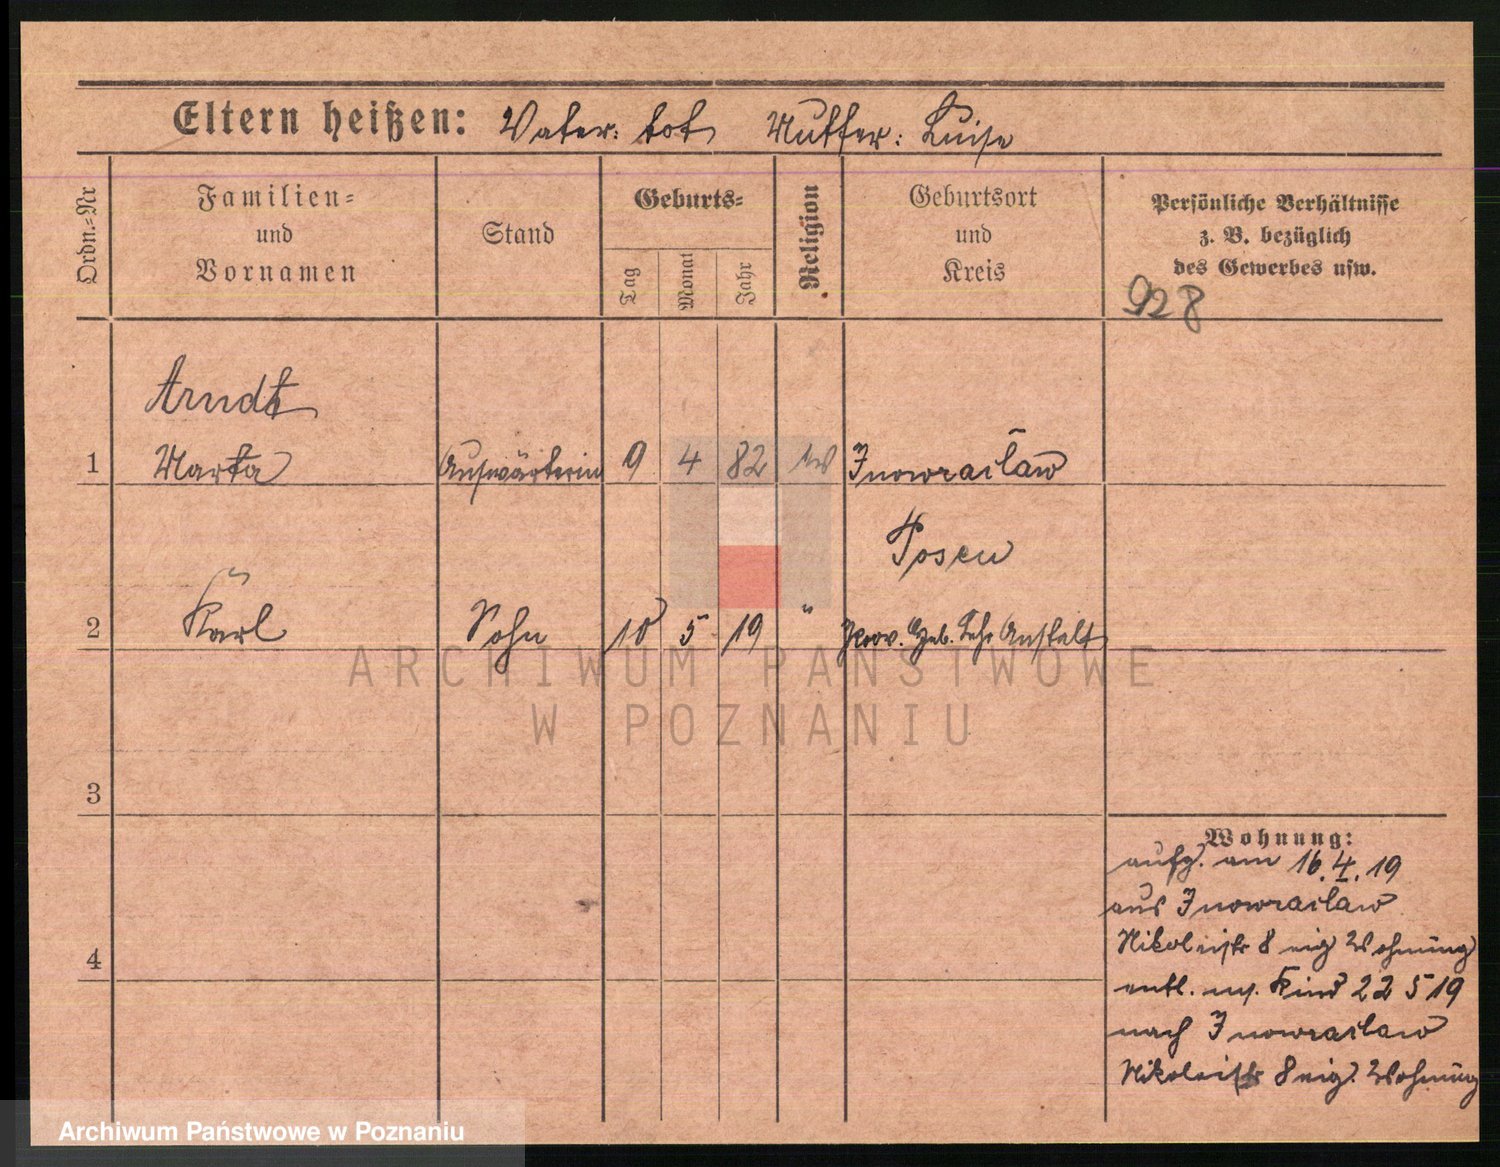 Eltern heißen: Vater: tot Mutter: Luise
Ordn.-Nr
Familien-
und
Vornamen
Stand
Geburts-
Tag
Monat
Jahr
Religion
Geburtsort
und
Kreis
Persönliche Verhältnisse
z. B. bezüglich
des Gewerbes usw.
928
Arndt
1 Marta Aufwärterin 9 4 82 Inowraclaw
Posen
2 Karl Sohn 10 5 19 " Prov. Heb. Lehr Anstalt
3
4
Wohnung:
aufg. am 16.4.19
aus Inowraclaw
Nikoleistr 8 eig Wohnung
entl. m. Kind 22 5 19
nach Inowraclaw
Nikoleistr 8 eig. Wohnung
ARCHIWUM PAŃSTWOWE
W POZNANIU
Archiwum Państwowe w Poznaniu